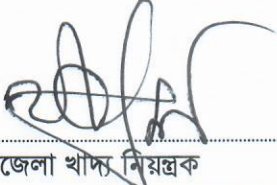 জেলা খাদ্য নিয়ন্ত্রক